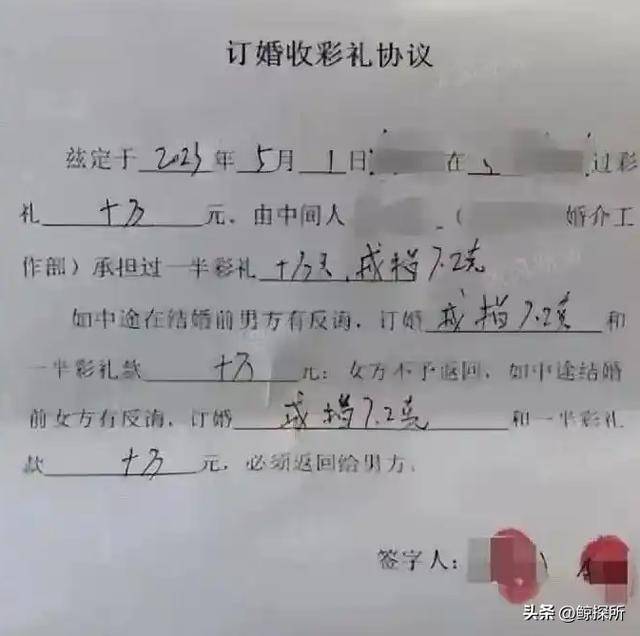 订婚收彩礼协议
兹定于2023年5月1日 在 过彩
礼十万元，由中间人 （ 婚介工
作部）承担过一半彩礼十万元，戒指7.2克
如中途在结婚前男方有反悔，订婚戒指7.2克和
一半彩礼款十万元；女方不予返回，如中途结婚
前女方有反悔，订婚戒指7.2克和一半彩礼
款十万元，必须返回给男方。
签字人：
头条 @鲸探所